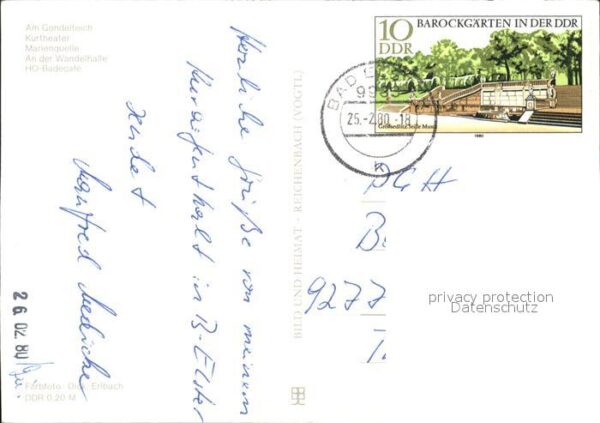 Am Gondelteich
Kurtheater
Marienquelle
An der Wandelhalle
HO-Badecafe
Herzliche Grüße von meinem
Kuraufenthalt in B-Elster
sendet
Manfred
26.02.80
Farbfoto: Dick, Erlbach
DDR 0,20 M
BILD UND HEIMAT · REICHENBACH (VOGTL)
10
DDR
BAROCKGÄRTEN IN DER DDR
Großsedlitz, Stille Musik
1980
BAD
25.-2.80.-18
PGH
B
9277
privacy protection
Datenschutz